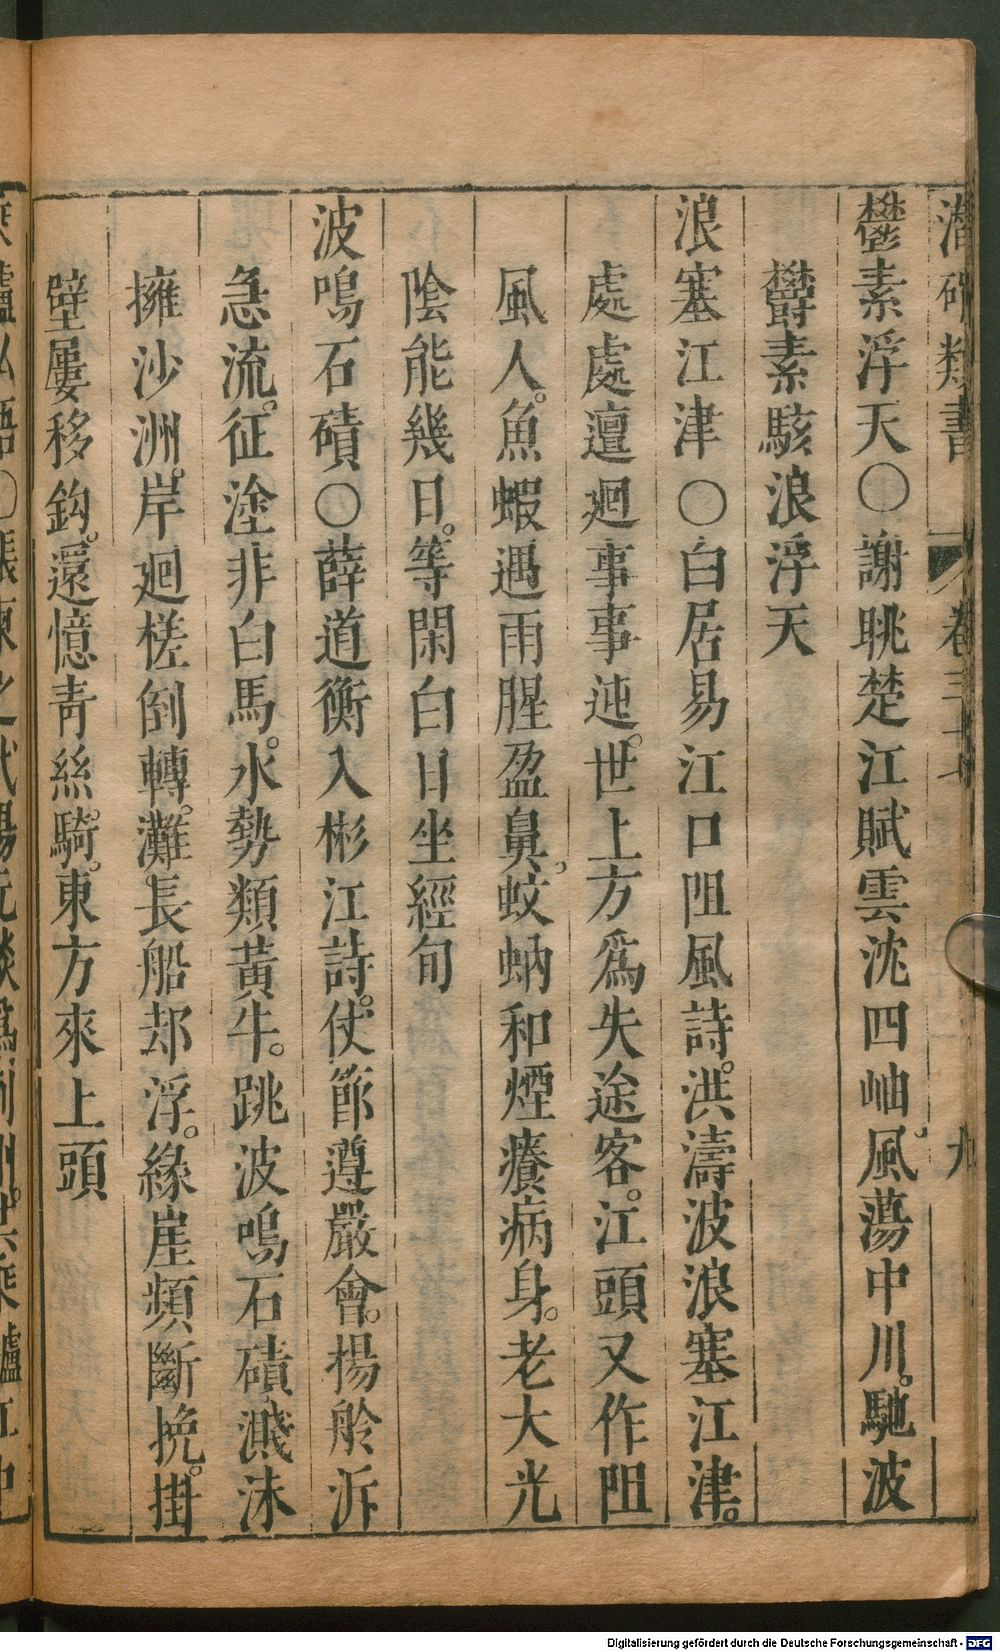 潛確類書 卷三十 九
鬱素浮天〇謝眺楚江賦雲沈四岫風蕩中川。馳波
欝素駭浪浮天
浪塞江津〇白居易江口阻風詩。洪濤波浪塞江津。
處處邅迴事事迍。世上方爲失途客。江頭又作阻
風人。魚蝦遇雨腥盈鼻。蚊蚋和煙癢病身。老大光
陰能幾日。等閑白日坐經旬
波鳴石磧〇薛道衡入彬江詩。仗節遵嚴會。揚舲泝
急流。征塗非白馬。水勢類黃牛。跳波鳴石磧濺沫
擁沙洲。岸迴槎倒轉。灘長船却浮。緣崖頻斷挽。掛
壁屢移鈎。還憶青絲騎。東方來上頭
Digitalisierung gefördert durch die Deutsche Forschungsgemeinschaft - DFG